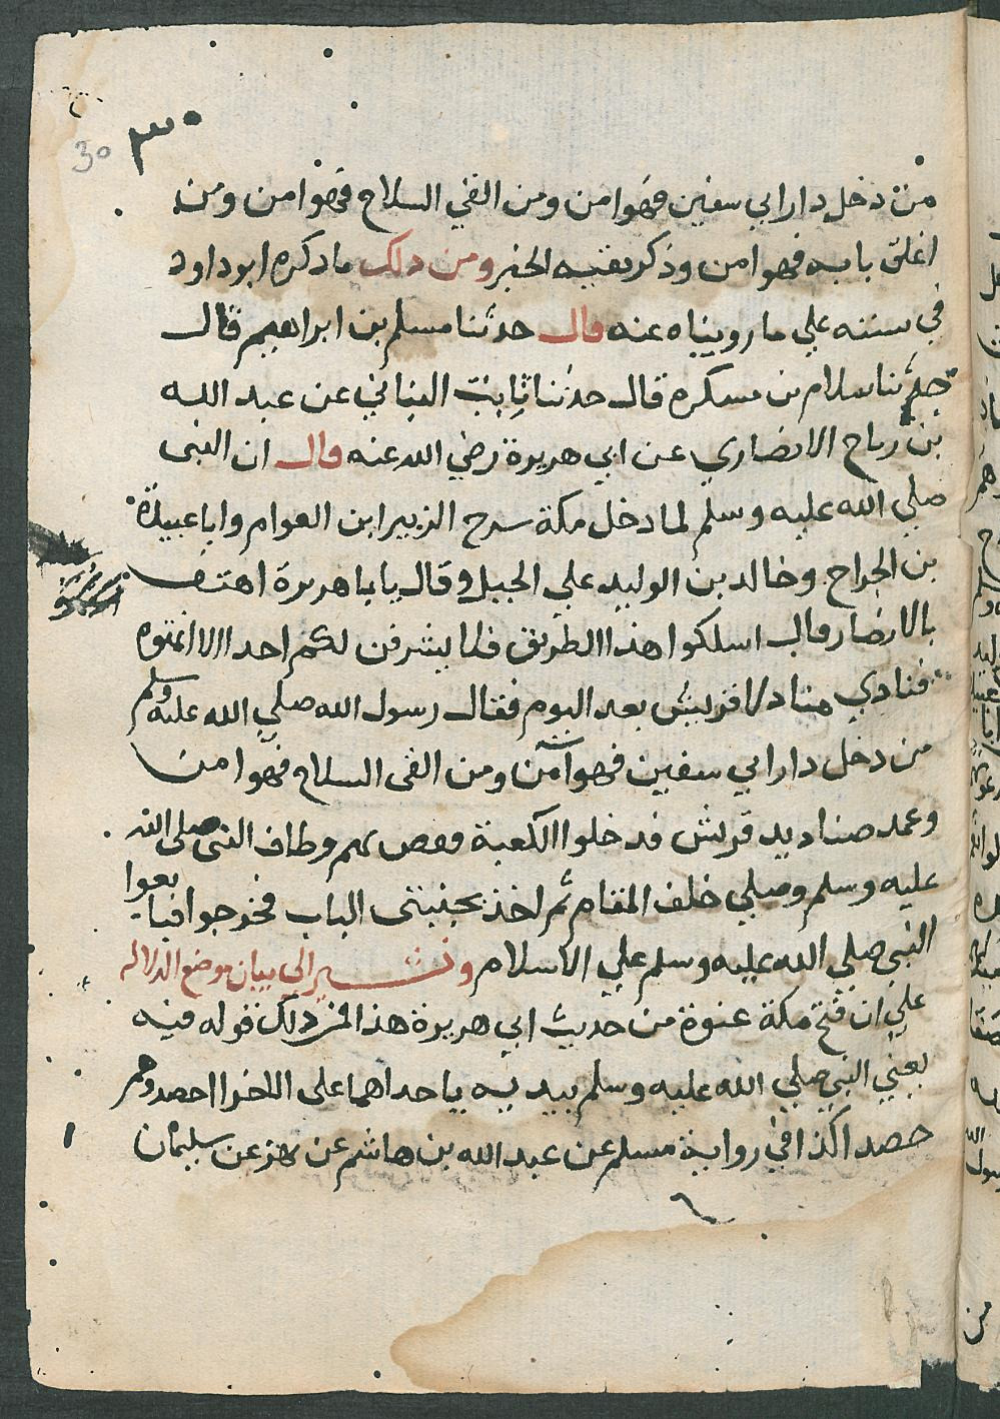 ٣٠
30
من دخل دار ابي سفين فهوامن ومن القي السلاح فهوامن ومن
اغلق بابه فهوامن وذكر بقيه الخبر ومن دلك ماذكره ابوداود
في سننه علي مارويناه عنه قال حدثنا مسلم بن ابراهيم قال
حدثنا سلام بن مسكره قال حدثنا ثابت البناني عن عبد الله
بن رباح الانصاري عن ابي هريرة رضي الله عنه قال ان النبى
صلي الله عليه وسلم لمادخل مكة سرح الزبير ابن العوام واباعبيدة
بن الجراح وخالد بن الوليد علي الجبل وقال يابا هريرة اهتف
بالانصار قال اسلكوا هذا الطريق فلا يشرفن لكم احد الا انمتوه
فنادي مناد لا قريش بعد اليوم فقال رسول الله صلي الله عليه وسلم
من دخل دار ابي سفين فهوآمن ومن القى السلاح فهوامن
وعمد صناديد قريش فدخلوا الكعبة فغص بهم وطاف النبى صلى الله
عليه وسلم وصلي خلف المقام ثم اخذ بجنبتى الباب فخرجوا فبايعوا
النبى صلي الله عليه وسلم علي الاسلام ونشير الى بيان موضع الدلاله
علي ان فتح مكة عنوة من حديث ابي هريرة هذا فمن ذلك قوله فيه
يعني النبي صلي الله عليه وسلم بيديه ياحداهما على الاخرا احصدوهمر
حصدا كذا في رواية مسلم عن عبد الله بن هاشم عن بهز عن سليمان